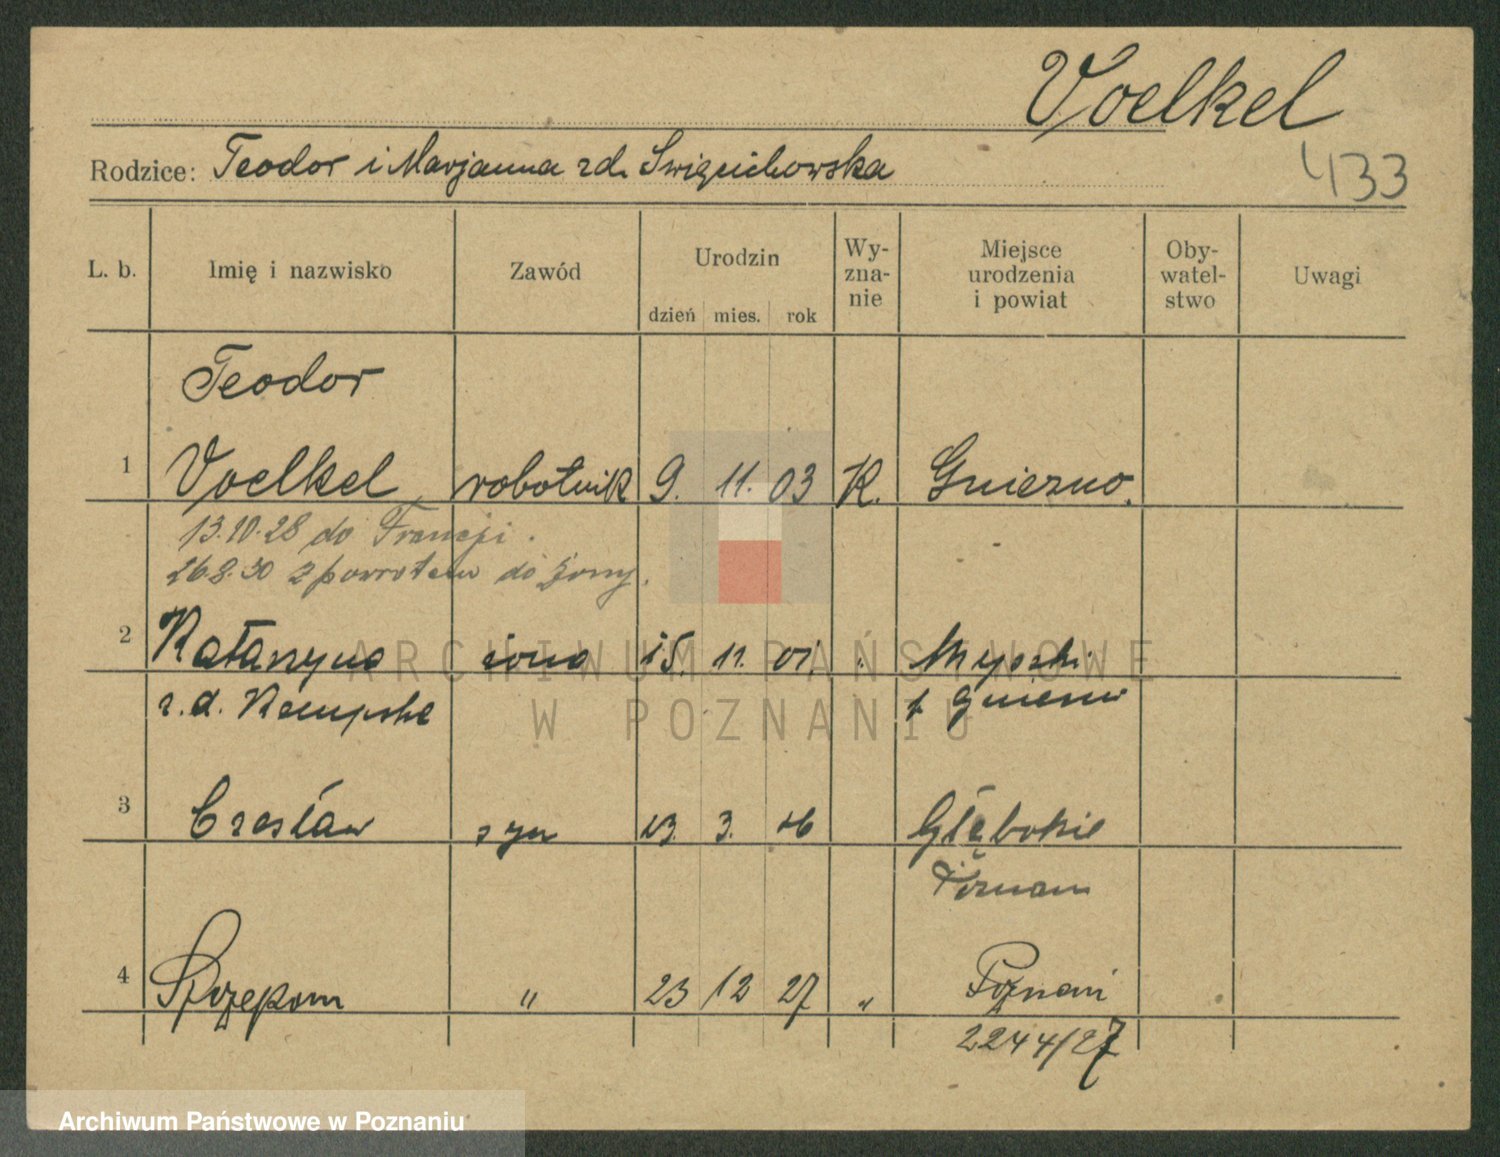 Voelkel
Rodzice: Teodor i Marjanna zd. Święcichowska
433
L. b. Imię i nazwisko Zawód Urodzin dzień mies. rok Wy-zna-nie Miejsce urodzenia i powiat Oby-watel-stwo Uwagi
Teodor
1 Voelkel robotnik 9. 11. 03 K. Gniezno.
13.10.28 do Francji.
26.8.30 z powrotem do żony.
2 Katarzyna żona 15. 11. 01. " Myszki
z. d. p. Gniezno
3 Czesław syn 13. 3. 26 Głębokie
Poznań
4 Szczepan " 23 12 27 " Poznań
2244/27
ARCHIWUM PAŃSTWOWE
W POZNANIU
Archiwum Państwowe w Poznaniu